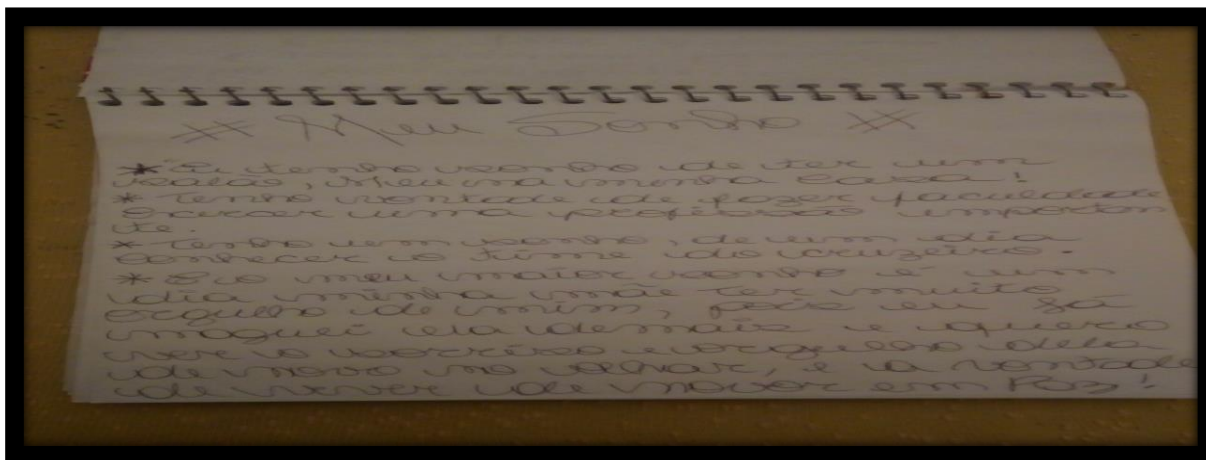 # Meu Sonho #
* Eu tenho sonho de ter um
salão, meu na minha casa!
* Tenho vontade de fazer faculdade
Exercer uma profissão importan
te.
* Tenho um sonho, de um dia
conhecer o time do cruzeiro.
* E o meu maior sonho é um
dia minha mãe ter muito
orgulho de mim, pois eu já
magoei ela demais e quero
ver o sorriso e orgulho dela
de novo no olhar, e a vontade
de viver de novo em Paz!